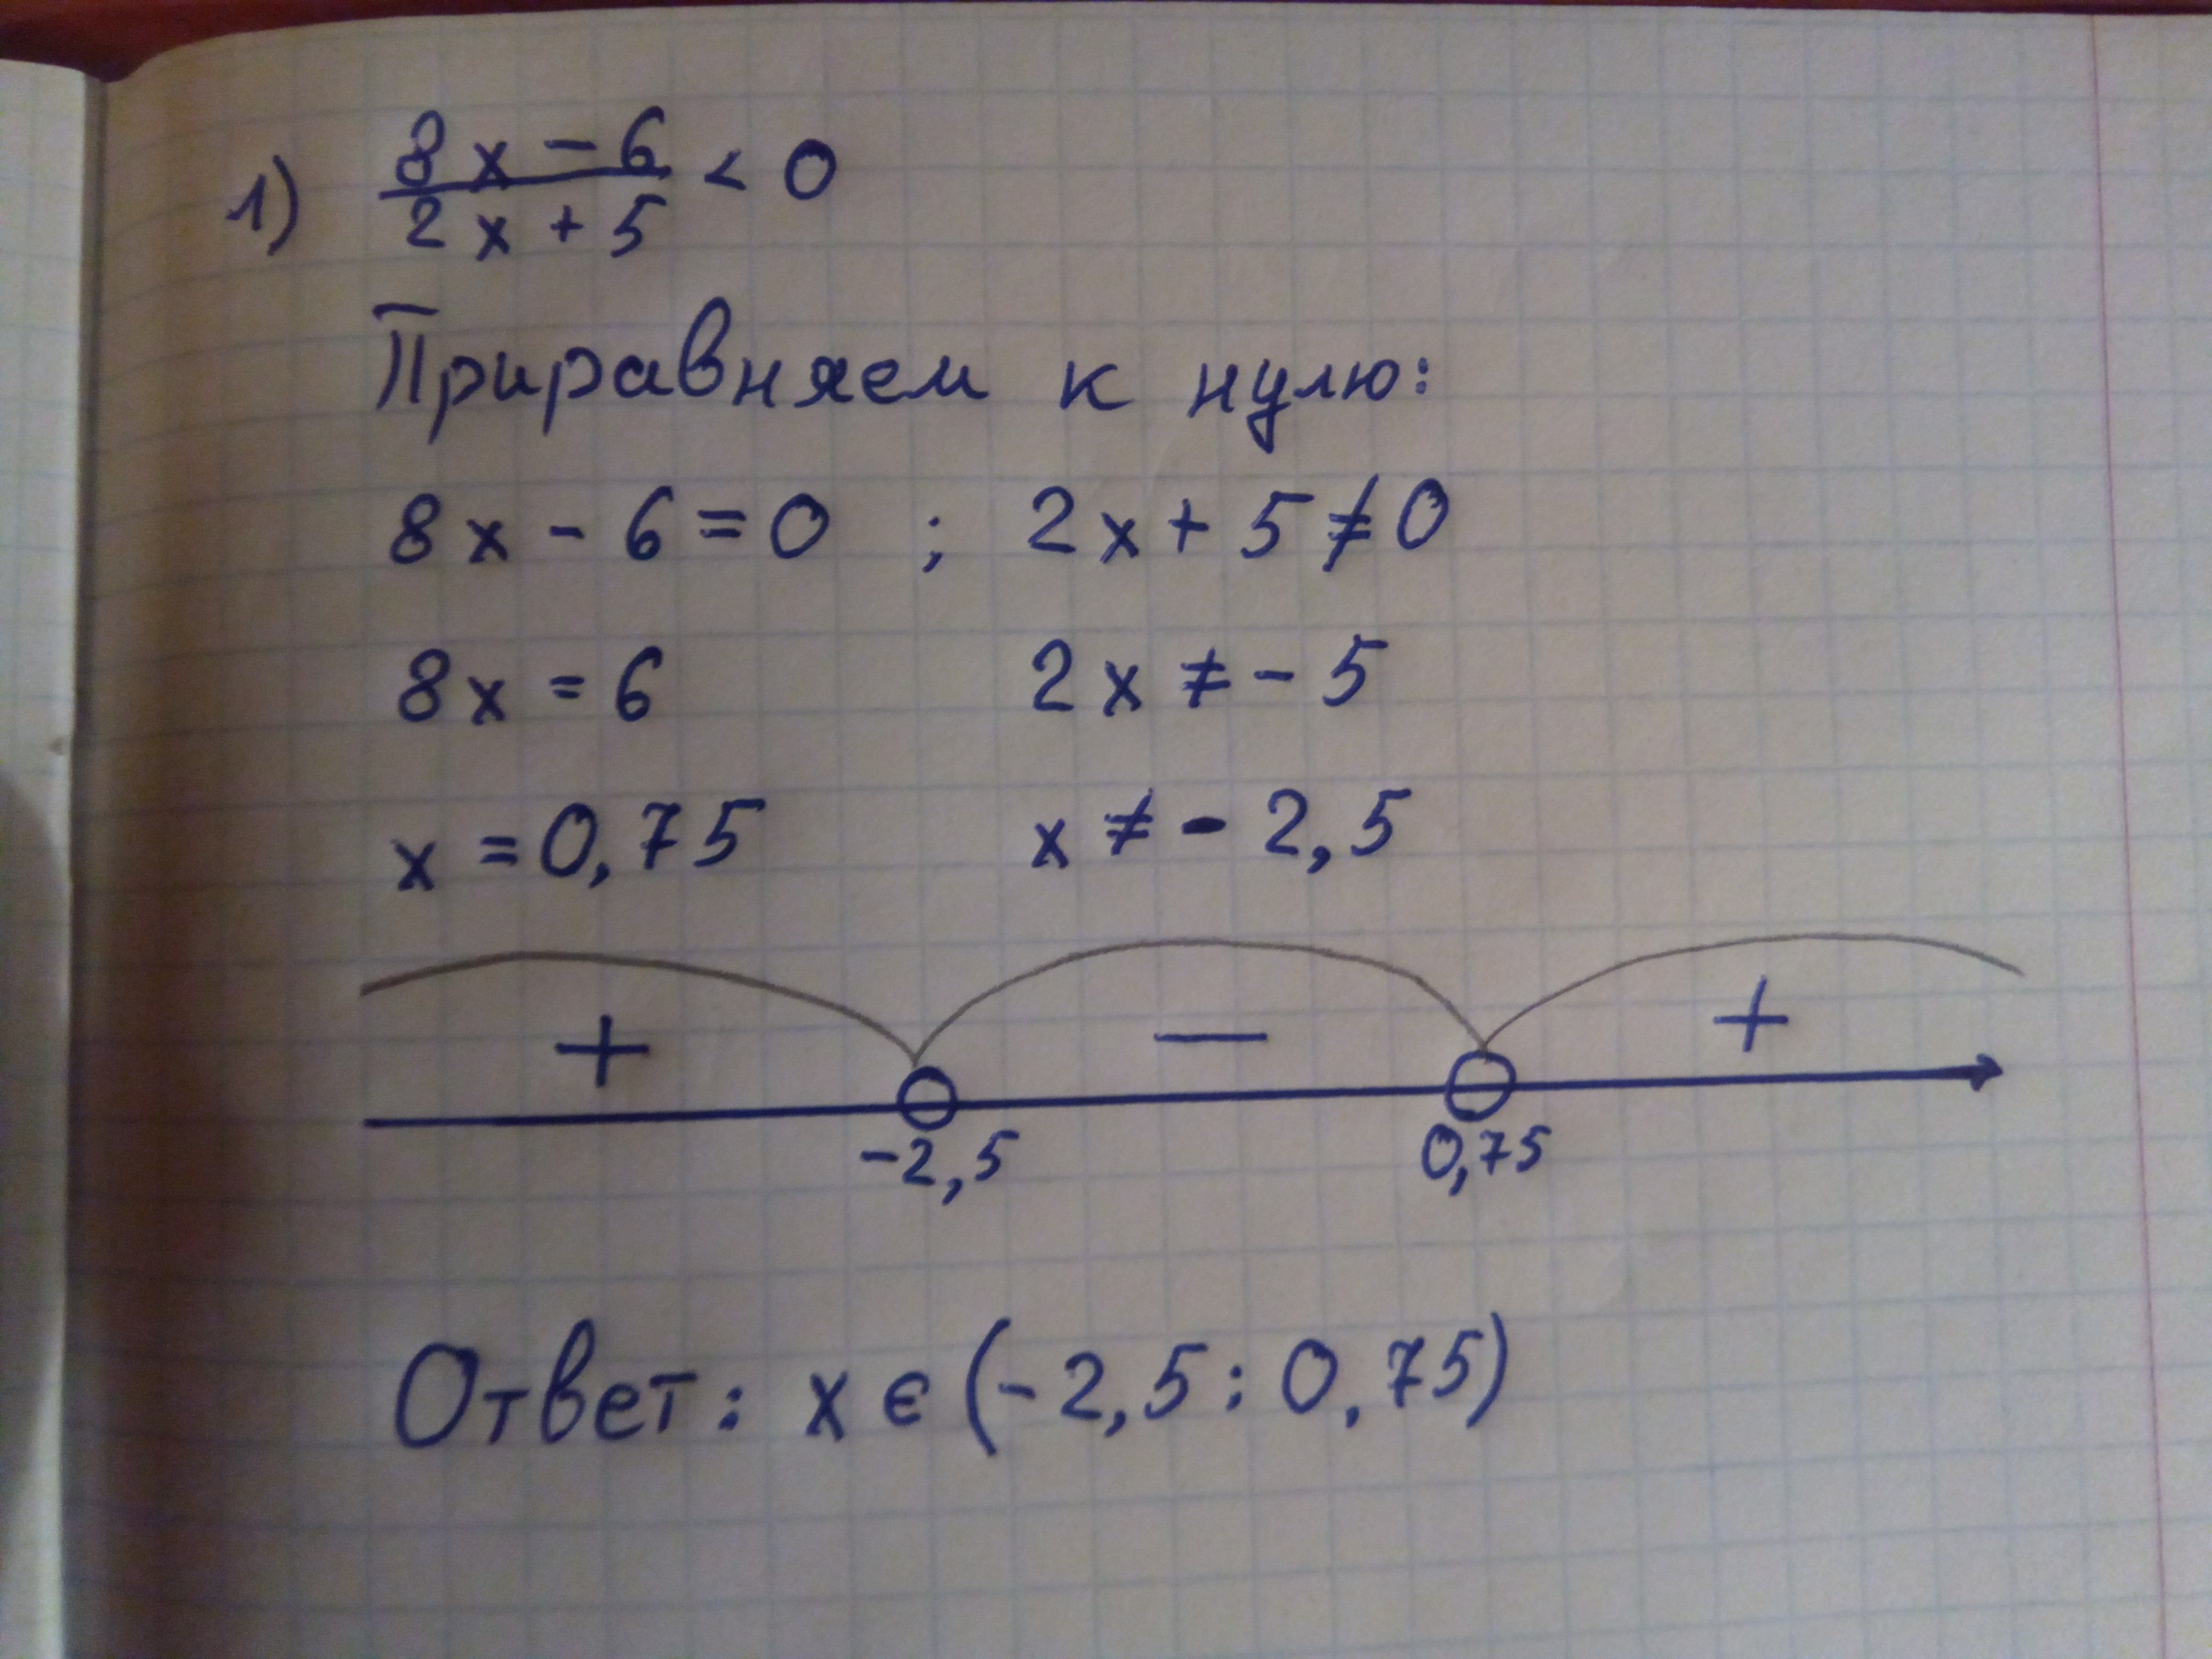 1) (8x - 6)/(2x + 5) < 0
Приравняем к нулю:
8x - 6 = 0 ; 2x + 5 ≠ 0
8x = 6 2x ≠ - 5
x = 0,75 x ≠ - 2,5
+ — +
-2,5 0,75
Ответ: x ∈ (-2,5; 0,75)